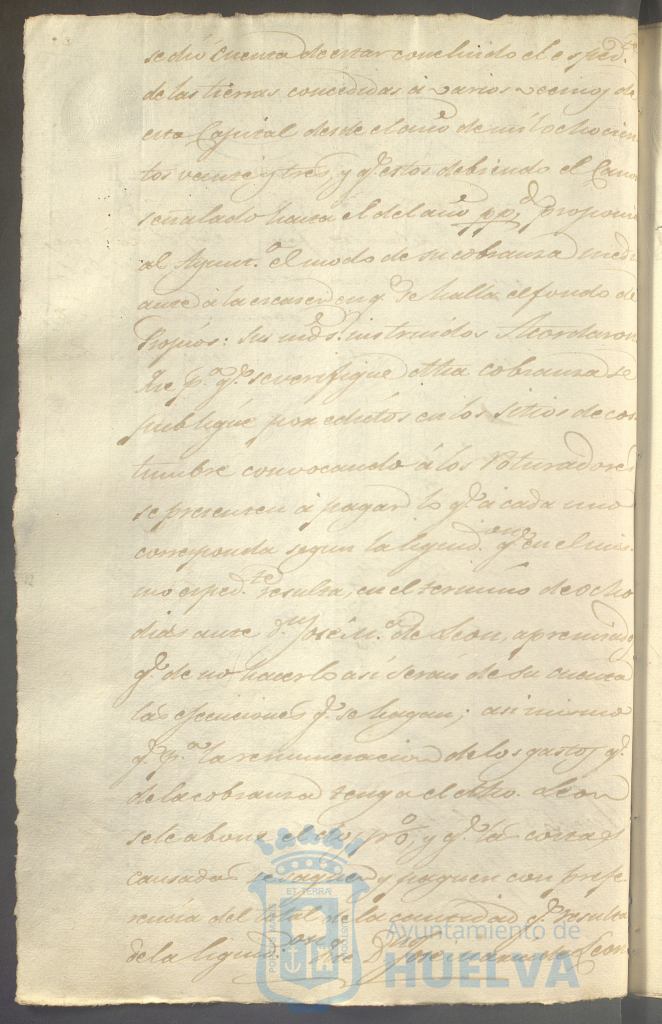 se dió cuenta de estar concluido el esped.te
de las tierras concedidas á varios vecinos de
esta Capital desde el año de mil ochocien
tos veinte y tres, y q.e estos debiendo el Canon
señalado hasta el del año pp.o propone
al Ayunt.o el modo de su cobranza medi
ante á la escases en q.e se halla el fondo de
Propios: Sus mds. instruidos Acordaron
Que p.a q.e se verifique dtha cobranza se
publique por edictos en los sitios de cos
tumbre convocando á los Roturadores
se presenten á pagar lo q.e á cada uno
corresponda segun la liquid.on q.e en el mis
mo esped.te resulta, en el termino de ocho
dias ante d.n José M.a de Leon, apremiado
q.e de no hacerlo asi serán de su cuenta
las ejecuciones q.e se hagan; asi mismo
q.e p.a la renumeracion de los gastos q.e
de la cobranza tenga el dtho. Leon
se le abone el p.o, y q.e las costas
causadas se saquen y paguen con prefe
rencia del total de la cantidad q.e resulta
de la liquid.on D.n José Maria de Leon
ET TERRÆ
Ayuntamiento de
HUELVA